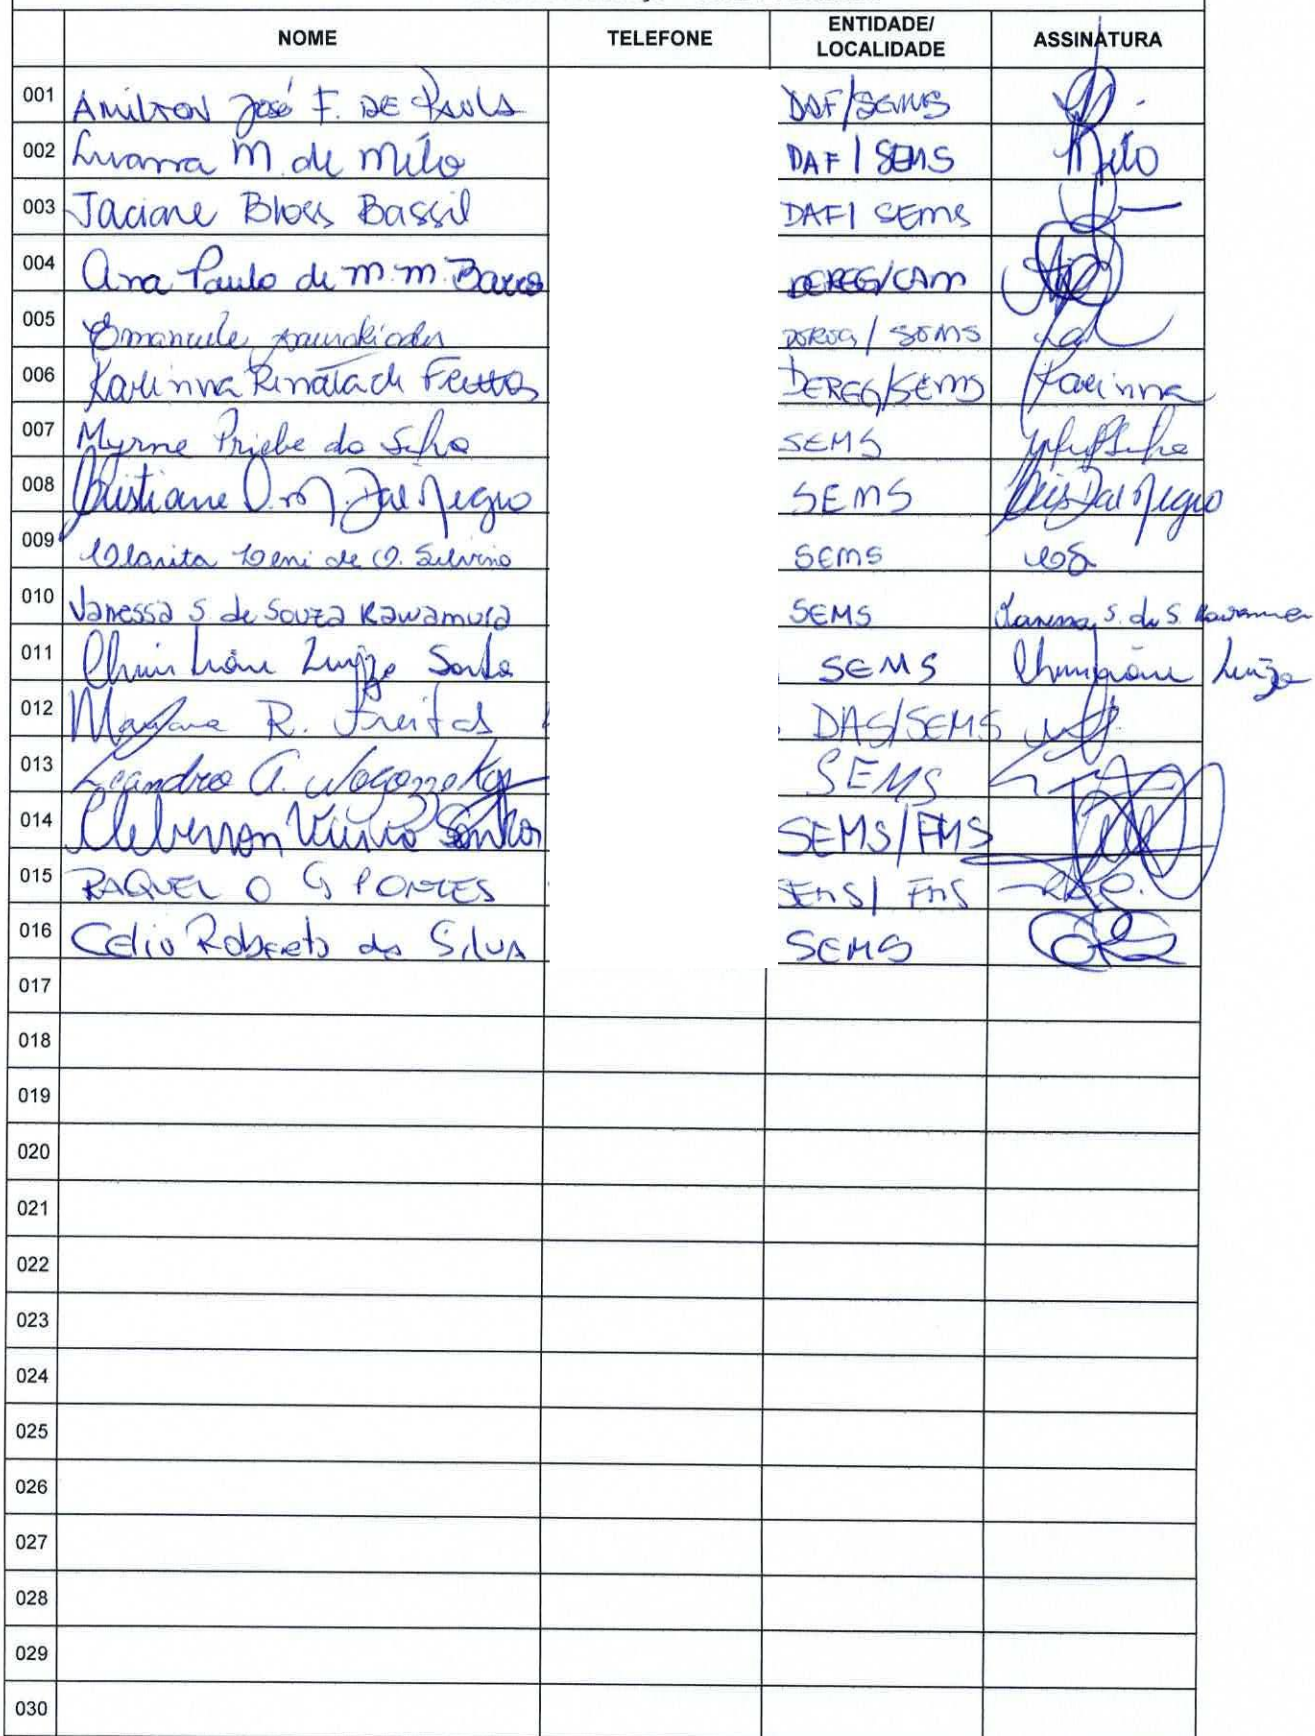 NOME TELEFONE ENTIDADE/ LOCALIDADE ASSINATURA
001 Amilton José F. DE Paula DAF/SEMS
002 Luana M. de Melo DAF / SEMS Melo
003 Jaciane Bloss Bassil DAF/ SEMS
004 Ana Paula de M. M. Barros DEREG/CAM
005 Emanuele SEMS
006 Karinna Renata de Freitas DEREG/SEMS Karinna
007 Myrne Priebe da Silva SEMS
008 Cristiane O. M. Dal Negro SEMS Cris Dal Negro
009 Clarita Leni de O. Silvino SEMS
010 Vanessa S de Souza Kawamura SEMS Vanessa S. de S. Kawamura
011 Luiza SEMS Luiza
012 R. Freitas DAS/SEMS
013 Leandro A. SEMS
014 Cleberson SEMS/FMS
015 RAQUEL O G PONTES SEMS/ FMS
016 Celio Roberto da Silva SEMS
017
018
019
020
021
022
023
024
025
026
027
028
029
030